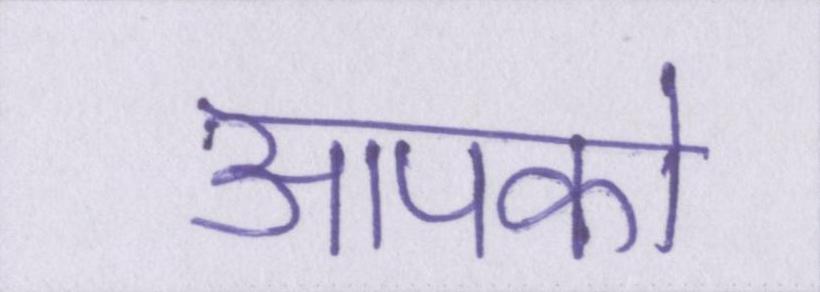 आपको